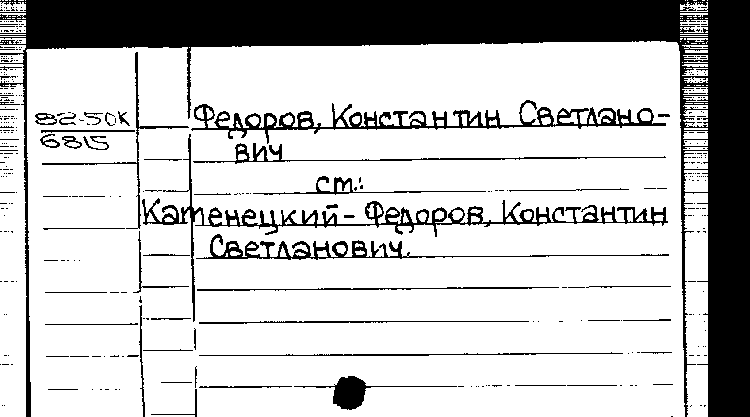 82-50К
6815
Федоров, Константин Светлано-
вич
см.:
Катенецкий-Федоров, Константин
Светланович.